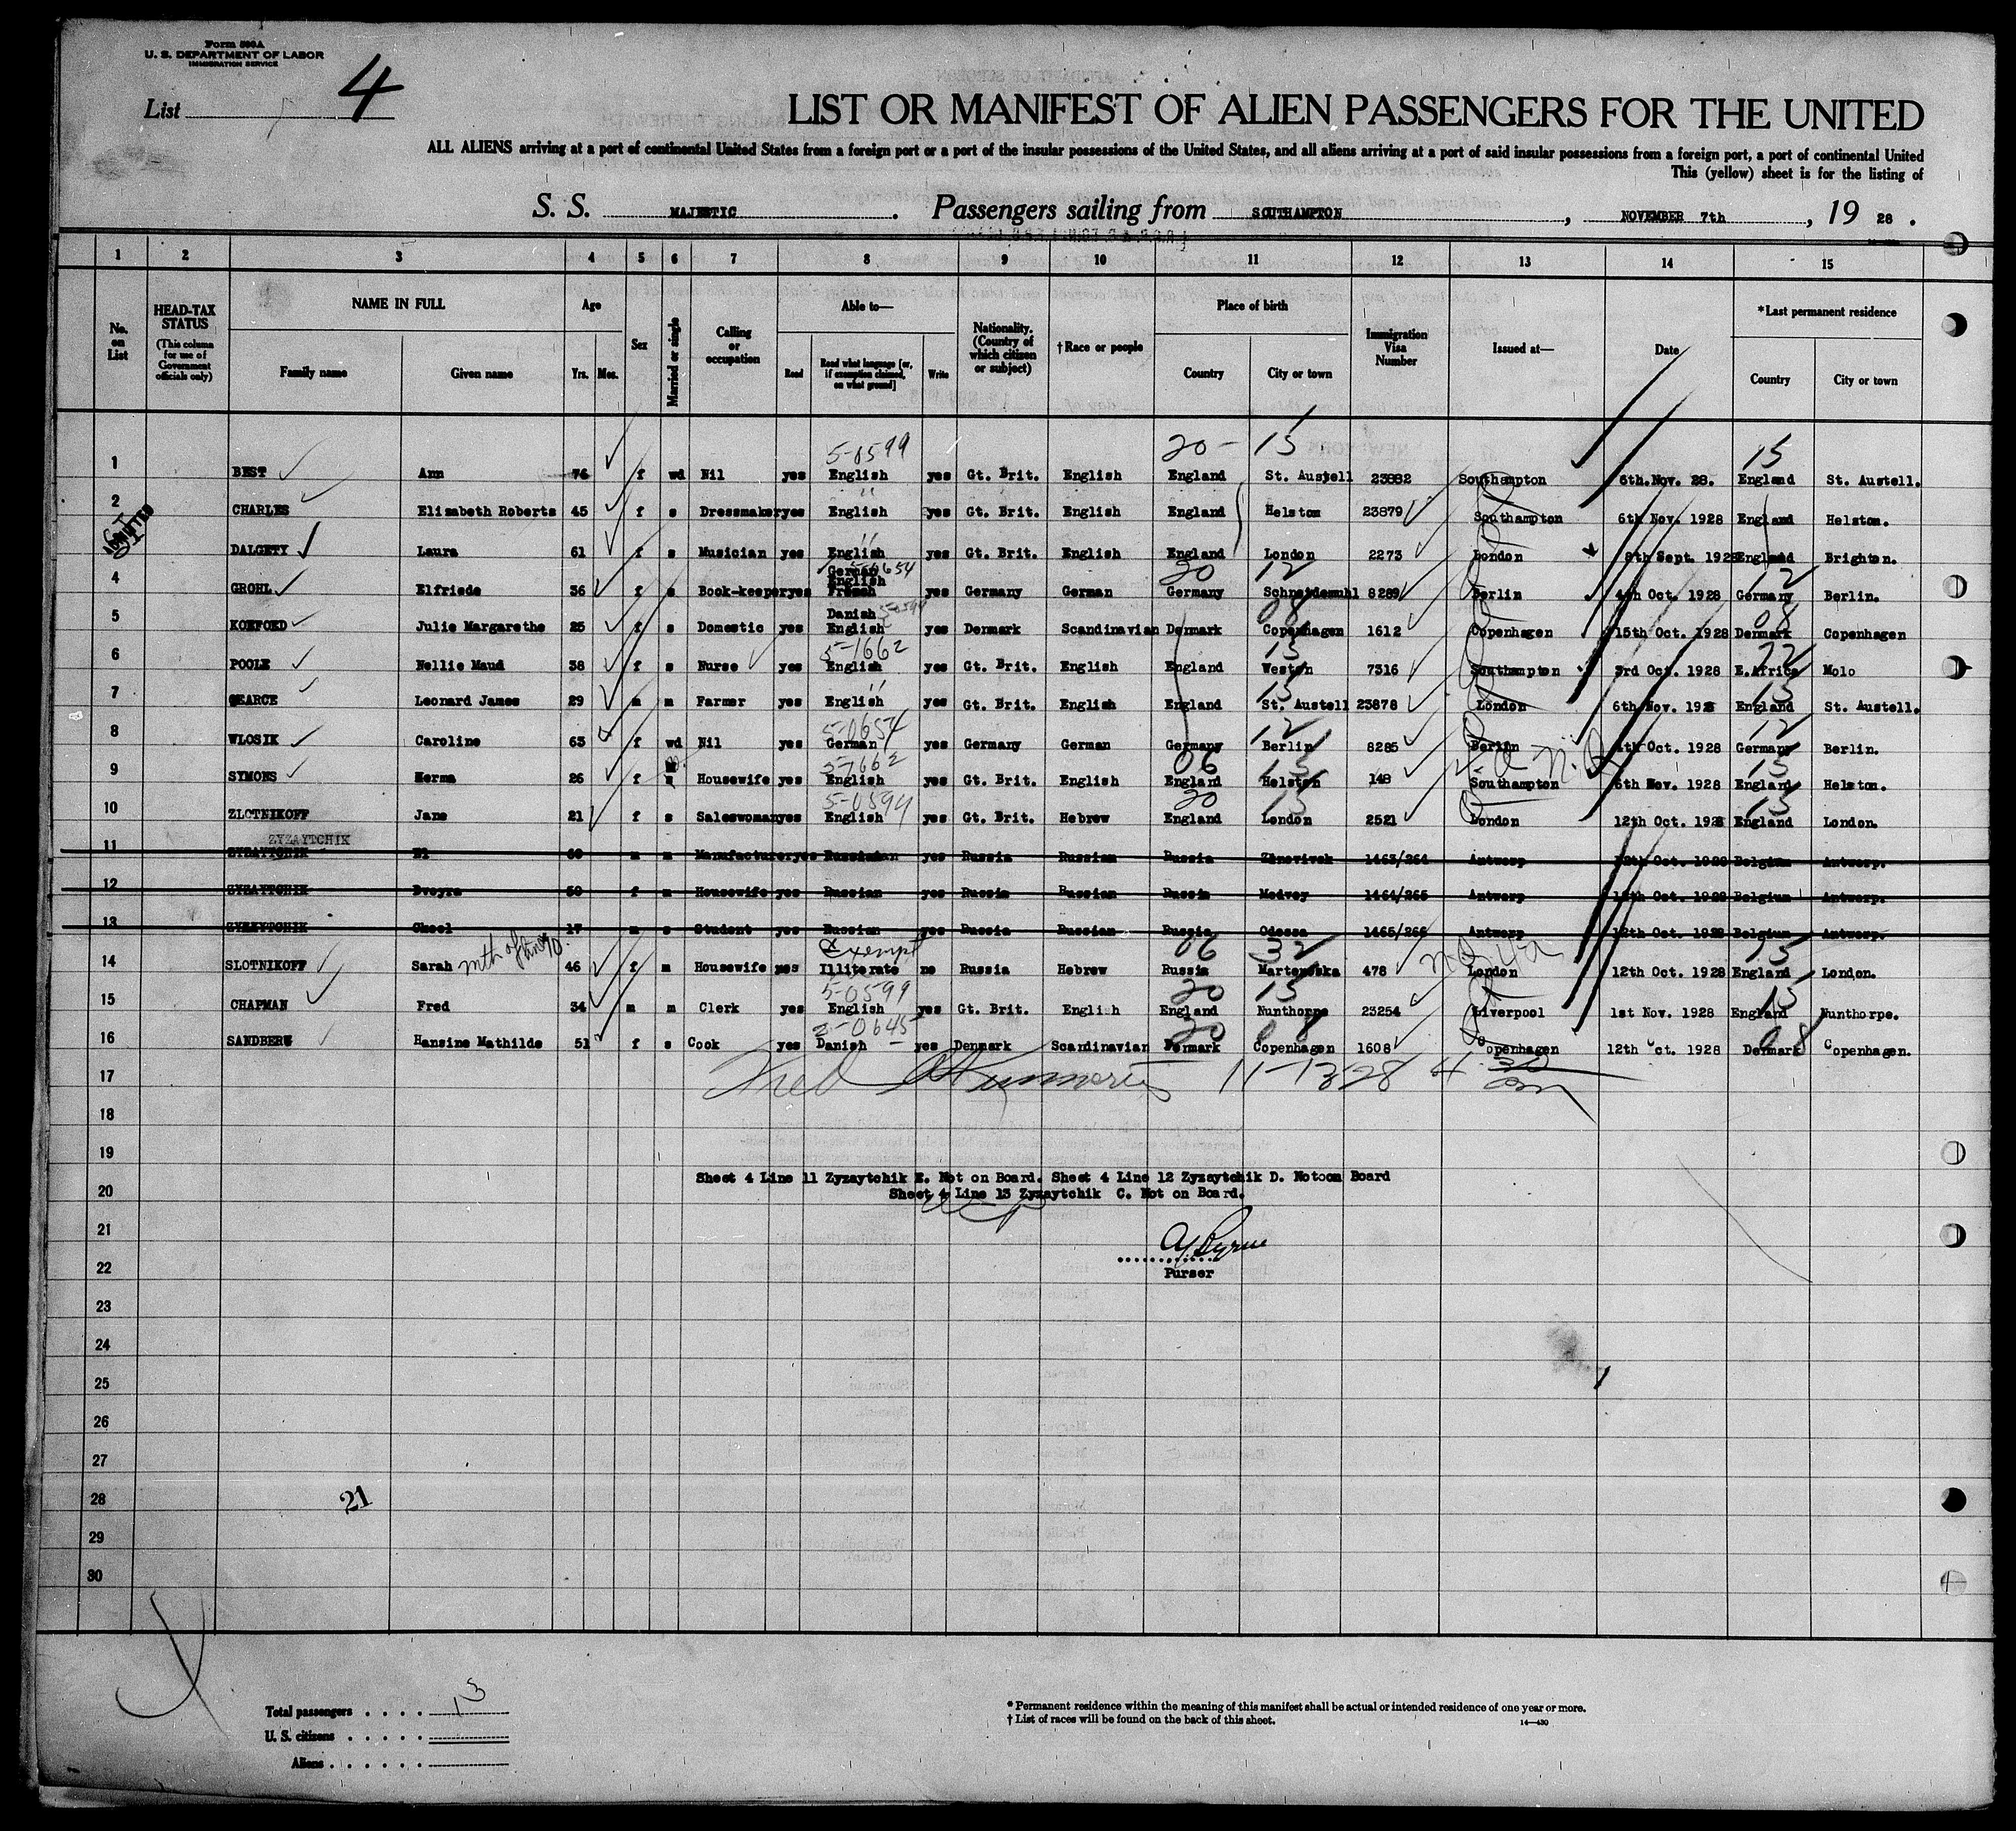 Form 500A
U. S. DEPARTMENT OF LABOR
IMMIGRATION SERVICE
List 4
LIST OR MANIFEST OF ALIEN PASSENGERS FOR THE UNITED
ALL ALIENS arriving at a port of continental United States from a foreign port or a port of the insular possessions of the United States, and all aliens arriving at a port of said insular possessions from a foreign port, a port of continental United
This (yellow) sheet is for the listing of
S. S. MAJESTIC . Passengers sailing from SOUTHAMPTON , NOVEMBER 7th , 19 28 .
1 2 3 4 5 6 7 8 9 10 11 12 13 14 15
No. on List
HEAD-TAX STATUS (This column for use of Government officials only)
NAME IN FULL Family name Given name
Age Yrs. Mos.
Sex
Married or single
Calling or occupation
Able to— Read Read what language [or, if exemption claimed, on what ground] Write
Nationality. (Country of which citizen or subject)
†Race or people
Place of birth Country City or town
Immigration Visa Number
Issued at—
Date
*Last permanent residence Country City or town
5-0599 20- 15 15
1 BEST Ann 76 f wd Nil yes English yes Gt. Brit. English England St. Austell 23882 Southampton 6th.Nov. 28. England St. Austell.
2 CHARLES Elizabeth Roberts 45 f s Dressmaker yes English yes Gt. Brit. English England Helston 23879 Southampton 6th Nov. 1928 England Helston.
ADMITTED
DALGETY Laura 61 f s Musician yes English yes Gt. Brit. English England London 2273 London 8th Sept. 1928 England Brighton.
4 GROHL Elfriede 36 f s Book-keeper yes German English French yes Germany German Germany Schneidemuhl 8289 Berlin 4th Oct. 1928 Germany Berlin.
5 KOEFOED Julie Margarethe 25 f s Domestic yes Danish English yes Denmark Scandinavian Denmark Copenhagen 1612 Copenhagen 15th Oct. 1928 Denmark Copenhagen
6 POOLE Nellie Maud 38 f s Nurse yes English yes Gt. Brit. English England Weston 7316 Southampton 3rd Oct. 1928 E.Africa Molo
7 GEARCE Leonard James 29 m m Farmer yes English yes Gt. Brit. English England St. Austell 23878 London 6th Nov. 1928 England St. Austell.
8 WLOSIK Caroline 63 f wd Nil yes German yes Germany German Germany Berlin 8285 Berlin 4th Oct. 1928 Germany Berlin.
9 SYMONS Kerma 26 f m Housewife yes English yes Gt. Brit. English England Helston 148 Southampton 6th Nov. 1928 England Helston.
10 ZLOTNIKOFF Jane 21 f s Saleswoman yes English yes Gt. Brit. Hebrew England London 2521 London 12th Oct. 1928 England London.
ZYZAYTCHIK
11 ZYZAYTCHIK El 60 m m Manufacturer yes Russian yes Russia Russian Russia Zinovivsk 1463/264 Antwerp 12th Oct. 1928 Belgium Antwerp.
12 ZYZAYTCHIK Dveyra 50 f m Housewife yes Russian yes Russia Russian Russia Medvey 1464/265 Antwerp 12th Oct. 1928 Belgium Antwerp.
13 ZYZAYTCHIK Cheel 17 m s Student yes Russian yes Russia Russian Russia Odessa 1465/266 Antwerp 12th Oct. 1928 Belgium Antwerp.
Exempt 06 32 15
14 SLOTNIKOFF Sarah mth of line 10. 46 f m Housewife Illiterate no Russia Hebrew Russia 478 London 12th Oct. 1928 England London.
5-0599 20 15 15
15 CHAPMAN Fred 34 m m Clerk yes English yes Gt. Brit. English England Nunthorpe 23254 Liverpool 1st Nov. 1928 England Nunthorpe.
2-0645 20 08 08
16 SANDBERG Hansine Mathilde 51 f s Cook yes Danish yes Denmark Scandinavian Denmark Copenhagen 1608 Copenhagen 12th Oct. 1928 Denmark Copenhagen.
17 Fred 11-13-28
18
19
Sheet 4 Line 11 Zyzaytchik E. Not on Board. Sheet 4 Line 12 Zyzaytchik D. Notoom Board
20 Sheet 4 Line 13 Zyzaytchik C. Not on Board.
21
A Byrne
22 Purser
23
24
25
26
27
28 21
29
30
Total passengers . . . . 13
U. S. citizens . . . . .
Aliens . . . . . .
* Permanent residence within the meaning of this manifest shall be actual or intended residence of one year or more.
† List of races will be found on the back of this sheet. 14—430